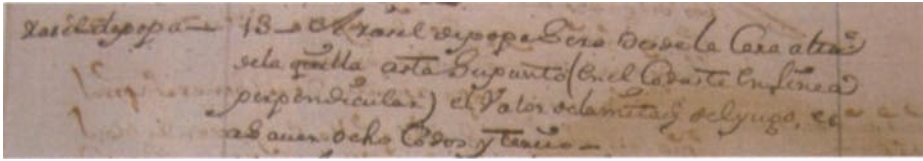 Rasel de popa — 13 — El rasel de popa sera desde la Cara alta
de la quilla asta su punto (en el Codaste en linea
perpendicular) el Valor de la mitad del yugo, es
a saver ocho Codos y tercio —